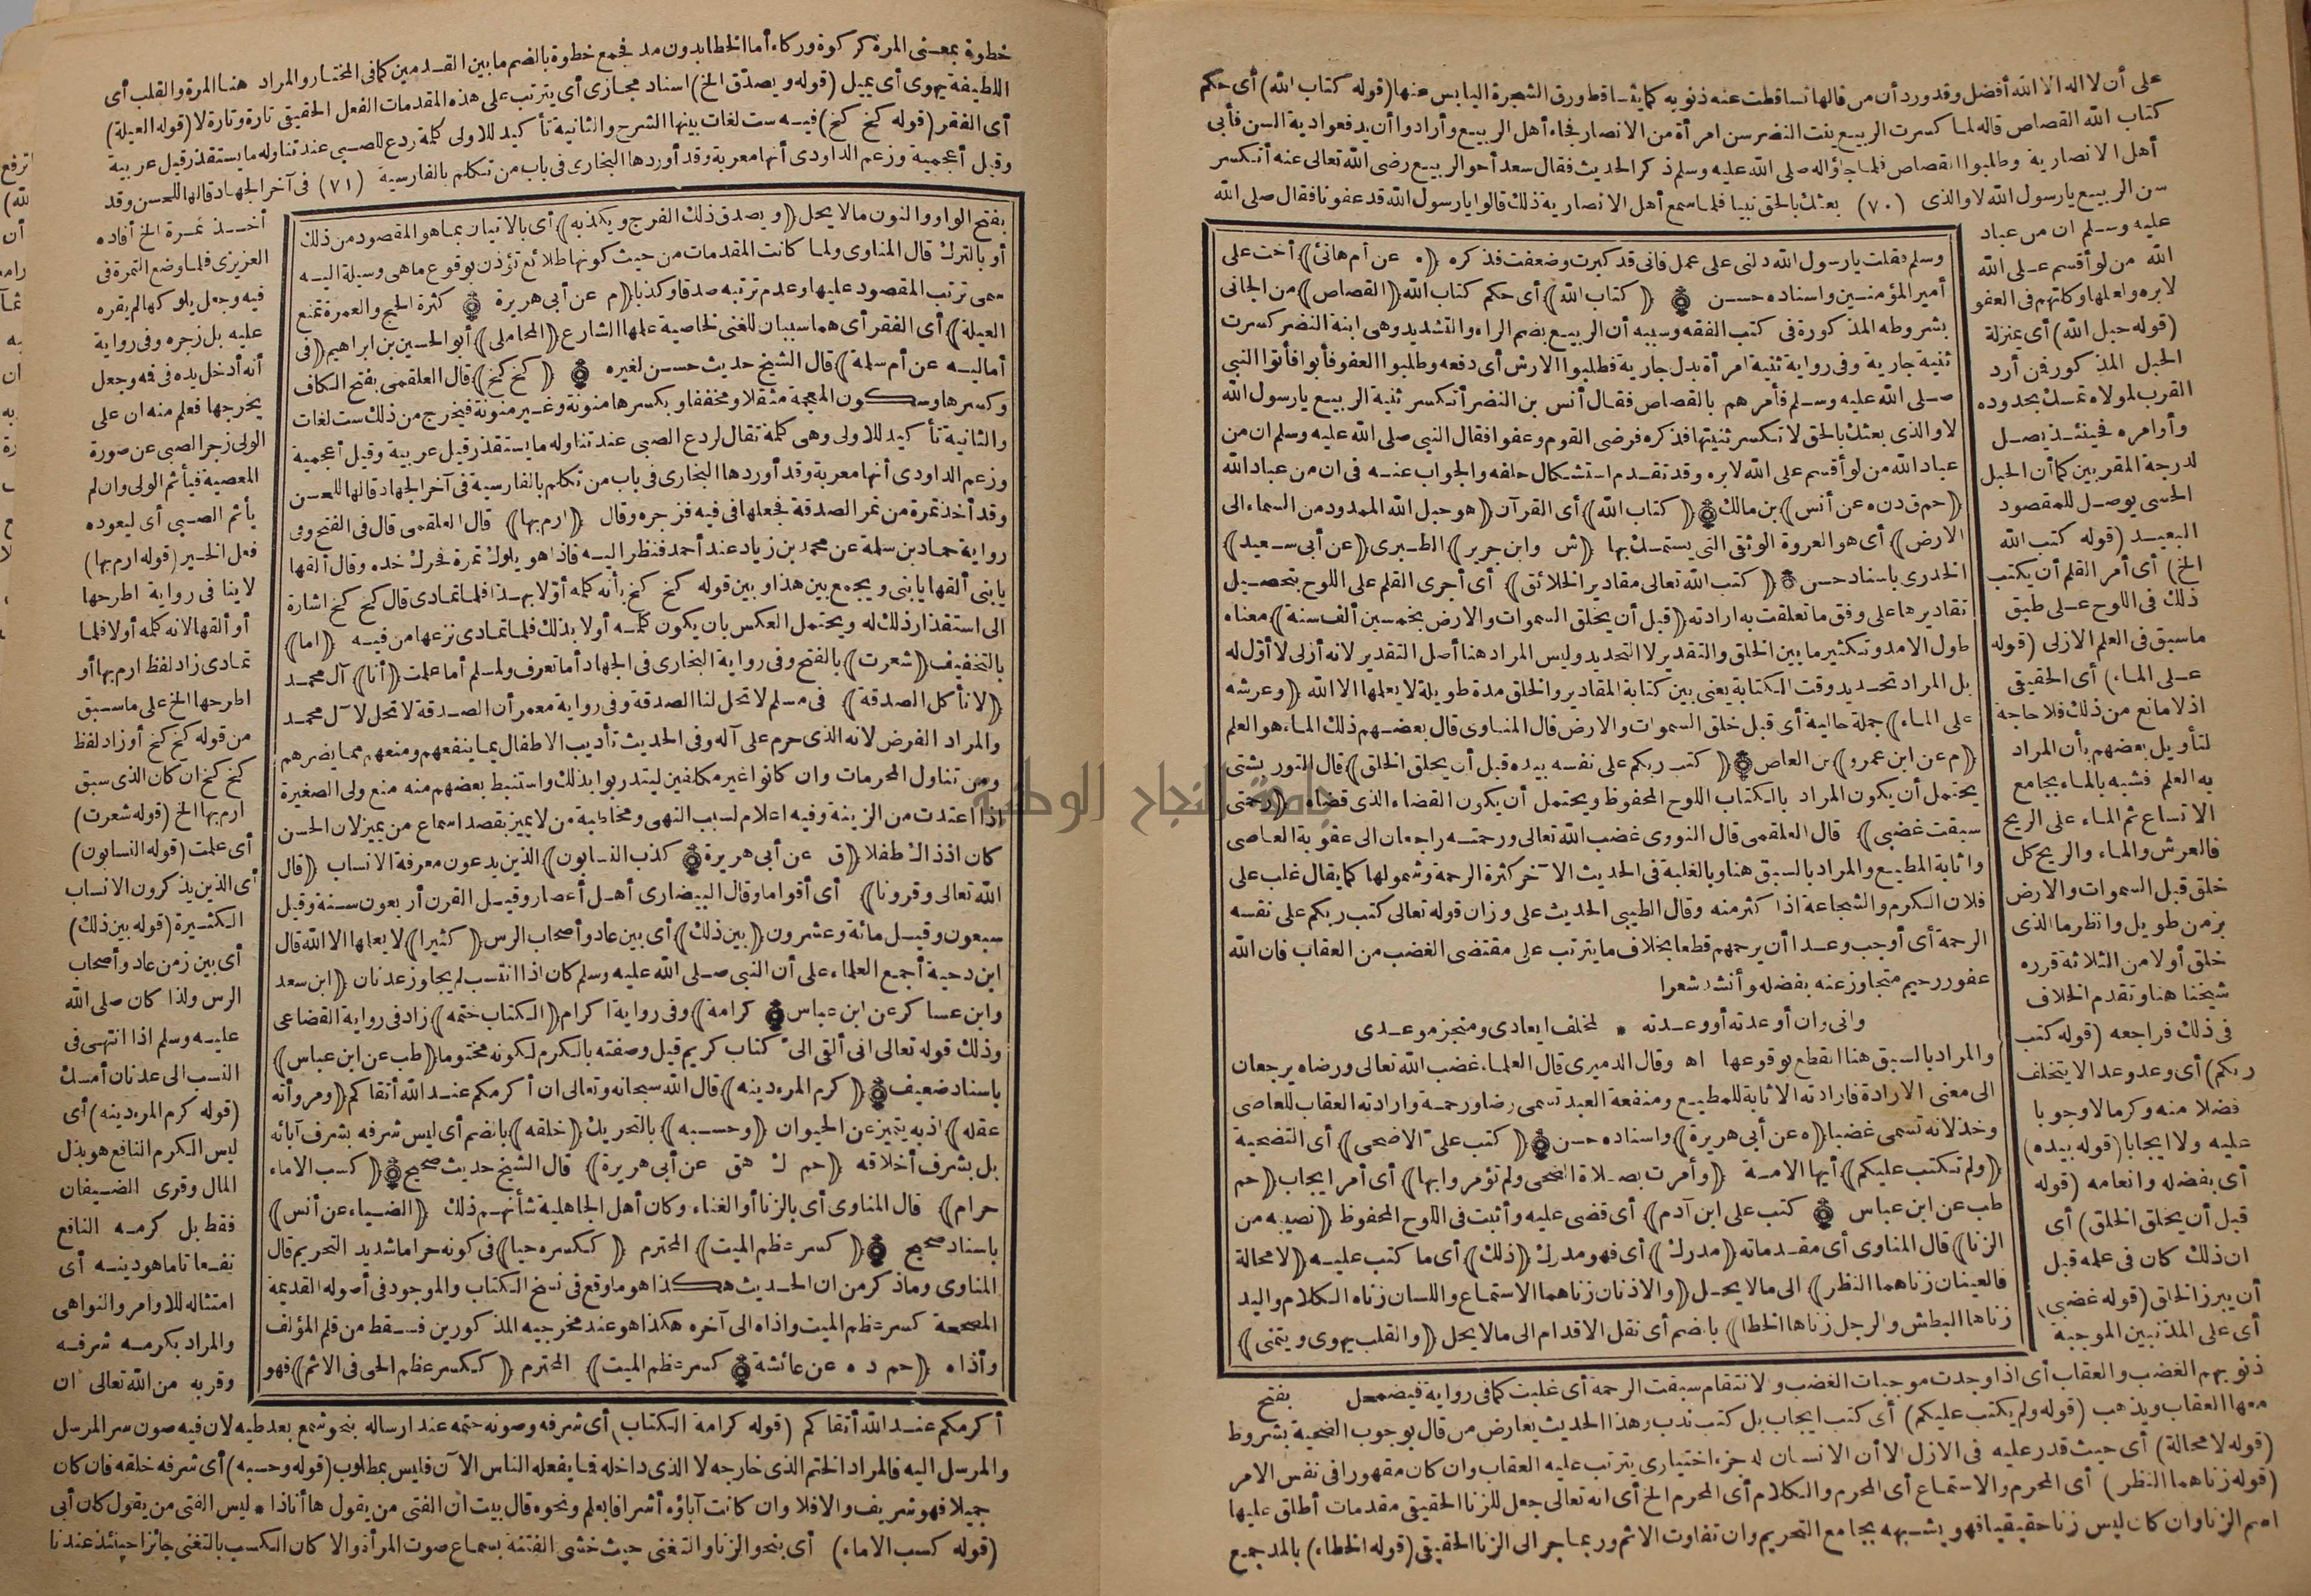 على أن لا اله الا الله أفضل وقد ورد أن من قالها تساقطت عنه ذنوبه كما يتساقط ورق الشجرة اليابس عنها (قوله كتاب الله) أى حكم
كتاب الله القصاص قاله لما كسرت الربيع بنت النضر سن امرأة من الانصار فجاء أهل الربيع وأرادوا أن يدفعوا دية السن فأبى
أهل الانصارية وطلبوا القصاص فلما جاؤا له صلى الله عليه وسلم ذكر الحديث فقال سعد أخو الربيع رضى الله تعالى عنه أتكسر
سن الربيع يارسول الله لا والذى (٧٠) بعثك بالحق نبيا فلما سمع أهل الانصارية ذلك قالوا يارسول الله قد عفونا فقال صلى الله
عليه وسلم ان من عباد
الله من لو أقسم على الله
لابره ولعلها وكانتهم فى العفو
(قوله حبل الله) أى بمنزلة
الحبل المذكور فمن أرد
القرب لمولاه تمسك بحدوده
وأوامره فحينئذ يصل
لدرجة المقربين كما أن الحبل
الحسى يوصل للمقصود
البعيد (قوله كتب الله
الخ) أى أمر القلم أن يكتب
ذلك فى اللوح على طبق
ما سبق فى العلم الازلى (قوله
على الماء) أى الحقيقى
اذ لا مانع من ذلك فلا حاجة
لتأويل بعضهم بأن المراد
به العلم فشبه بالماء بجامع
الاتساع ثم الماء على الريح
فالعرش والماء والريح كل
خلق قبل السموات والارض
بزمن طويل وانظر ما الذى
خلق أولا من الثلاثة قرره
شيخنا هنا وتقدم الخلاف
فى ذلك فراجعه (قوله كتب
ربكم) أى وعد وعدا لا يتخلف
فضلا منه وكرما لا وجوبا
عليه ولا ايجابا (قوله بيده)
أى بفضله وانعامه (قوله
قبل أن يخلق الخلق) أى
ان ذلك كان فى علمه قبل
أن يبرز الخلق (قوله غضبى)
أى على المذنبين الموجبة
وسلم فقلت يارسول الله دلنى على عمل فانى قد كبرت وضعفت فذكره ﴿ه عن أم هانئ﴾ أخت على
أمير المؤمنين واسناده حسن ﴿كتاب الله﴾ أى حكم كتاب الله ﴿القصاص﴾ من الجانى
بشروطه المذكورة فى كتب الفقه وسببه أن الربيع بضم الراء والتشديد وهى ابنة النضر كسرت
ثنية جارية وفى رواية ثنية امرأة بدل جارية فطلبوا الارش أى دفعه وطلبوا العفو فأبوا فأتوا النبى
صلى الله عليه وسلم فأمرهم بالقصاص فقال أنس بن النضر أتكسر ثنية الربيع يارسول الله
لا والذى بعثك بالحق لا تكسر ثنيتها فذكره فرضى القوم وعفوا فقال النبى صلى الله عليه وسلم ان من
عباد الله من لو أقسم على الله لابره وقد تقدم استشكال حلفه والجواب عنه فى ان من عباد الله
﴿حم ق د ن ه عن أنس﴾ بن مالك ﴿كتاب الله﴾ أى القرآن ﴿هو حبل الله الممدود من السماء الى
الارض﴾ أى هو العروة الوثقى التى يستمسك بها ﴿ش وابن جرير﴾ الطبرى ﴿عن أبى سعيد﴾
الخدرى باسناد حسن ﴿كتب الله تعالى مقادير الخلائق﴾ أى أجرى القلم على اللوح بتحصيل
تقاديرها على وفق ما تعلقت به ارادته ﴿قبل أن يخلق السموات والارض بخمسين ألف سنة﴾ معناه
طول الامد وتكثير ما بين الخلق والتقدير لا التحديد وليس المراد هنا أصل التقدير لانه أزلى لا أوّل له
بل المراد تحديد وقت الكتابة يعنى بين كتابة المقادير والخلق مدة طويلة لا يعلمها الا الله ﴿وعرشه
على الماء﴾ جملة حالية أى قبل خلق السموات والارض قال المناوى قال بعضهم ذلك الماء هو العلم
﴿م عن ابن عمرو﴾ بن العاص ﴿كتب ربكم على نفسه بيده قبل أن يخلق الخلق﴾ قال التوربشتى
يحتمل أن يكون المراد بالكتاب اللوح المحفوظ ويحتمل أن يكون القضاء الذى قضاه ﴿رحمتى
سبقت غضبى﴾ قال العلقمى قال النووى غضب الله تعالى ورحمته راجعان الى عقوبة العاصى
واثابة المطيع والمراد بالسبق هنا وبالغلبة فى الحديث الآخر كثرة الرحمة وشمولها كما يقال غلب على
فلان الكرم والشجاعة اذا كثر منه وقال الطيبى الحديث على وزان قوله تعالى كتب ربكم على نفسه
الرحمة أى أوجب وعدا أن يرحمهم قطعا بخلاف ما يترتب على مقتضى الغضب من العقاب فان الله
عفو رحيم متجاوز عنه بفضله وأنشد شعرا
وانى وان أوعدته أو وعدته * لمخلف ايعادى ومنجز موعدى
والمراد بالسبق هنا القطع بوقوعها اه وقال الدميرى قال العلماء غضب الله تعالى ورضاه يرجعان
الى معنى الارادة فارادته الاثابة للمطيع ومنفعة العبد تسمى رضا ورحمة وارادته العقاب للعاصى
وخذلانه تسمى غضبا ﴿ه عن أبى هريرة﴾ واسناده حسن ﴿كتب على الاضحى﴾ أى التضحية
﴿ولم تكتب عليكم﴾ أيها الامة ﴿وأمرت بصلاة الضحى ولم تؤمروا بها﴾ أى أمر ايجاب ﴿حم
طب عن ابن عباس ﴿كتب على ابن آدم﴾ أى قضى عليه وأثبت فى اللوح المحفوظ ﴿نصيبه من
الزنا﴾ قال المناوى أى مقدماته ﴿مدرك﴾ أى فهو مدرك ﴿ذلك﴾ أى ما كتب عليه ﴿لا محالة
فالعينان زناهما النظر﴾ الى ما لا يحل ﴿والاذنان زناهما الاستماع واللسان زناه الكلام واليد
زناها البطش والرجل زناها الخطا﴾ بالضم أى نقل الاقدام الى ما لا يحل ﴿والقلب يهوى ويتمنى﴾
بفتح
ذنوبهم الغضب والعقاب أى اذا وجدت موجبات الغضب والانتقام سبقت الرحمة أى غلبت كما فى رواية فيضمحل
معها العقاب ويذهب (قوله ولم يكتب عليكم) أى كتب ايجاب بل كتب ندب وهذا الحديث يعارض من قال بوجوب الضحية بشروط
(قوله لا محالة) أى حيث قدر عليه فى الازل الا أن الانسان له جزء اختيارى يترتب عليه العقاب وان كان مقهورا فى نفس الامر
(قوله زناهما النظر) أى المحرم والاستماع أى المحرم والكلام أى المحرم الخ أى انه تعالى جعل للزنا الحقيقى مقدمات أطلق عليها
اسم الزنا وان كان ليس زنا حقيقيا فهو يشبهه بجامع التحريم وان تفاوت الاثم وربما جر الى الزنا الحقيقى (قوله الخطاء) بالمد جميع
خطوة بمعنى المرة كركوة وركاء أما الخطا بدون مد فجمع خطوة بالضم ما بين القدمين كما فى المختار والمراد هنا المرة والقلب أى
اللطيفة يهوى أى يميل (قوله ويصدّق الخ) اسناد مجازى أى يترتب على هذه المقدمات الفعل الحقيقى تارة وتارة لا (قوله العيلة)
أى الفقر (قوله كخ كخ) فيه ست لغات بينها الشرح والثانية تأكيد للاولى كلمة ردع للصبى عند تناوله ما يستقذر قيل عربية
وقيل أعجمية وزعم الداودى أنها معربة وقد أوردها البخارى فى باب من تكلم بالفارسية (٧١) فى آخر الجهاد قالها للحسن وقد
أخذ تمرة الخ أفاده
العزيزى فلما وضع التمرة فى
فيه وجعل يلوكها لم يقره
عليه بل زجره وفى رواية
أنه أدخل يده فى فه وجعل
يخرجها فعلم منه ان على
الولى زجر الصبى عن صورة
المعصية فيأثم الولى وان لم
يأثم الصبى أى ليعوده
فعل الخير (قوله ارم بها)
لا ينافى رواية اطرحها
أو ألقها لانه كلمه أولا فلما
تمادى زاد لفظ ارم بها أو
اطرحها الخ على ما سبق
من قوله كخ كخ أو زاد لفظ
كخ كخ ان كان الذى سبق
ارم بها الخ (قوله شعرت)
أى علمت (قوله النسابون)
أى الذين يذكرون الانساب
الكثيرة (قوله بين ذلك)
أى بين زمن عاد وأصحاب
الرس ولذا كان صلى الله
عليه وسلم اذا انتهى فى
النسب الى عدنان أمسك
(قوله كرم المرء دينه) أى
ليس الكرم النافع هو بذل
المال وقرى الضيفان
فقط بل كرمه النافع
نفعا تاما هو دينه أى
امتثاله للاوامر والنواهى
والمراد بكرمه شرفه
وقربه من الله تعالى ان
بفتح الواو والنون ما لا يحل ﴿ويصدق ذلك الفرج ويكذبه﴾ أى بالاتيان بما هو المقصود من ذلك
أو بالترك قال المناوى ولما كانت المقدمات من حيث كونها طلائع تؤذن بوقوع ما هى وسيلة اليه
سمى ترتب المقصود عليها وعدم ترتبه صدقا وكذبا ﴿م عن أبى هريرة ﴿كثرة الحج والعمرة تمنع
العيلة﴾ أى الفقر أى هما سببان للغنى لخاصية علمها الشارع ﴿المحاملى﴾ أبو الحسين بن ابراهيم ﴿فى
أماليه عن أم سلمة﴾ قال الشيخ حديث حسن لغيره ﴿كخ كخ﴾ قال العلقمى بفتح الكاف
وكسرها وسكون المعجمة مثقلا ومخففا وبكسرها منونة وغير منونة فيخرج من ذلك ست لغات
والثانية تأكيد للاولى وهى كلمة تقال لردع الصبى عند تناوله ما يستقذر قيل عربية وقيل أعجمية
وزعم الداودى أنها معربة وقد أوردها البخارى فى باب من تكلم بالفارسية فى آخر الجهاد قالها للحسن
وقد أخذ تمرة من تمر الصدقة فجعلها فى فيه فزجره وقال ﴿ارم بها﴾ قال العلقمى قال فى الفتح وفى
رواية حماد بن سلمة عن محمد بن زياد عند أحمد فنظر اليه فاذا هو يلوك تمرة فحرك خده وقال ألقها
يابنى ألقها يابنى ويجمع بين هذا وبين قوله كخ كخ بأنه كلمه أوّلا بهذا فلما تمادى قال كخ كخ اشارة
الى استقذار ذلك له ويحتمل العكس بان يكون كلمه أولا بذلك فلما تمادى نزعها من فيه ﴿اما﴾
بالتخفيف ﴿شعرت﴾ بالفتح وفى رواية البخارى فى الجهاد أما تعرف ولمسلم أما علمت ﴿أنا﴾ آل محمد
﴿لا نأكل الصدقة﴾ فى مسلم لا تحل لنا الصدقة وفى رواية معمر أن الصدقة لا تحل لآل محمد
والمراد الفرض لانه الذى حرم على آله وفى الحديث تأديب الاطفال بما ينفعهم ومنعهم مما يضرهم
ومن تناول المحرمات وان كانوا غير مكلفين ليتدربوا بذلك واستنبط بعضهم منه منع ولى الصغيرة
اذا اعتدت من الزينة وفيه اعلام لسبب النهى ومخاطبة من لا يميز بقصد اسماع من يميز لان الحسن
كان اذ ذاك طفلا ﴿ق عن أبى هريرة ﴿كذب النسابون﴾ الذين يدعون معرفة الانساب ﴿قال
الله تعالى وقرونا﴾ أى أقواما وقال البيضاوى أهل أعصار وقيل القرن أربعون سنة وقيل
سبعون وقيل مائة وعشرون ﴿بين ذلك﴾ أى بين عاد وأصحاب الرس ﴿كثيرا﴾ لا يعلمها الا الله قال
ابن دحية أجمع العلماء على أن النبى صلى الله عليه وسلم كان اذا انتسب لم يجاوز عدنان ﴿ابن سعد
وابن عساكر عن ابن عباس ﴿كرامة﴾ وفى رواية اكرام ﴿الكتاب ختمه﴾ زاد فى رواية القضاعى
وذلك قوله تعالى انى ألقى الىّ كتاب كريم قيل وصفته بالكرم لكونه مختوما ﴿طب عن ابن عباس﴾
باسناد ضعيف ﴿كرم المرء دينه﴾ قال الله سبحانه وتعالى ان أكرمكم عند الله أتقاكم ﴿ومروأته
عقله﴾ اذ به يتميز عن الحيوان ﴿وحسبه﴾ بالتحريك ﴿خلقه﴾ بالضم أى ليس شرفه بشرف آبائه
بل بشرف أخلاقه ﴿حم ك هق عن أبى هريرة﴾ قال الشيخ حديث صحيح ﴿كسب الاماء
حرام﴾ قال المناوى أى بالزنا أو الغناء وكان أهل الجاهلية شأنهم ذلك ﴿الضياء عن أنس﴾
باسناد صحيح ﴿كسر عظم الميت﴾ المحترم ﴿ككسره حيا﴾ فى كونه حراما شديد التحريم قال
المناوى وما ذكر من ان الحديث هكذا هو ما وقع فى نسخ الكتاب والموجود فى أصوله القديمة
المصححة كسر عظم الميت واذاه الى آخره هكذا هو عند مخرجيه المذكورين فسقط من قلم المؤلف
وأذاه ﴿حم د ه عن عائشة ﴿كسر عظم الميت﴾ المحترم ﴿ككسر عظم الحى فى الاثم﴾ فهو
أكرمكم عند الله أتقاكم (قوله كرامة الكتاب) أى شرفه وصونه ختمه عند ارساله بنحو شمع بعد طيه لان فيه صون سر المرسل
والمرسل اليه فالمراد الختم الذى خارجه لا الذى داخله فما يفعله الناس الآن فليس بمطلوب (قوله وحسبه) أى شرفه خلقه فان كان
جميلا فهو شريف والا فلا وان كانت آباؤه أشرافا بعلم ونحوه قال بيت ان الفتى من يقول ها أناذا * ليس الفتى من يقول كان أبى
(قوله كسب الاماء) أى بنحو الزنا والتغنى حيث خشى الفتنة بسماع صوت المرأة والا كان الكسب بالتغنى جائزا حينئذ عندنا
جامعة النجاح الوطنية